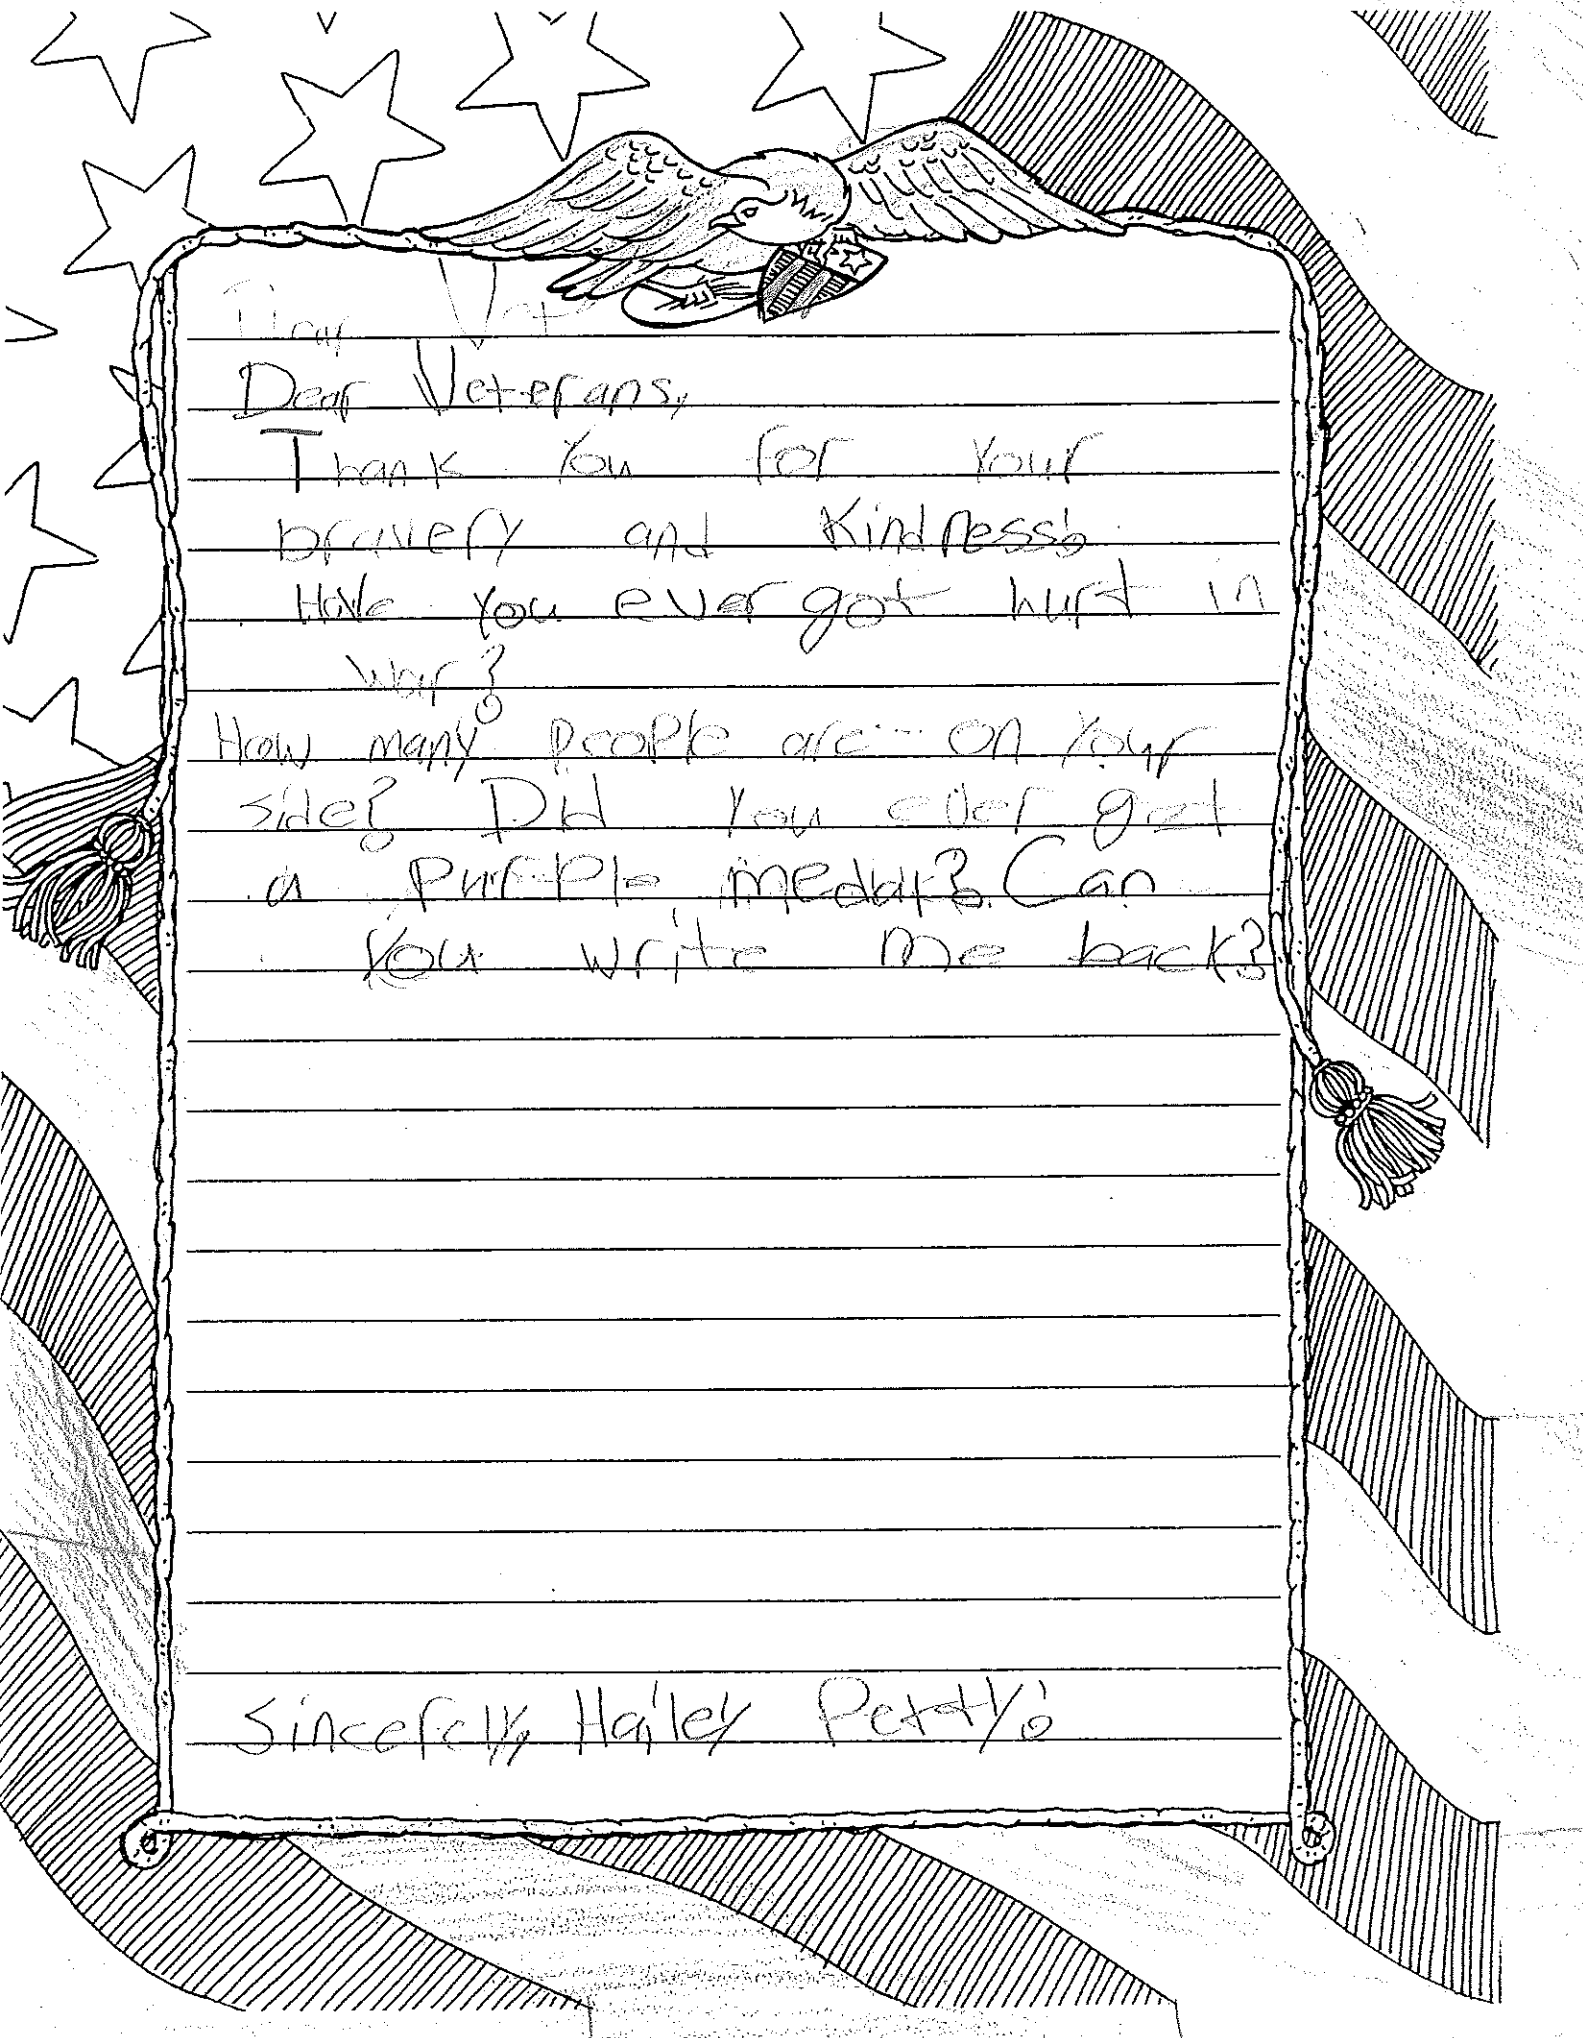 Dear Vet
Dear Veterans,
Thank You for Your
bravery and Kindness!
Have you ever got hurt in
War?
How many people are on Your
side? Did You ever get
a purple medal? Can
You write me back?
Sincerely, Hailey Petty!